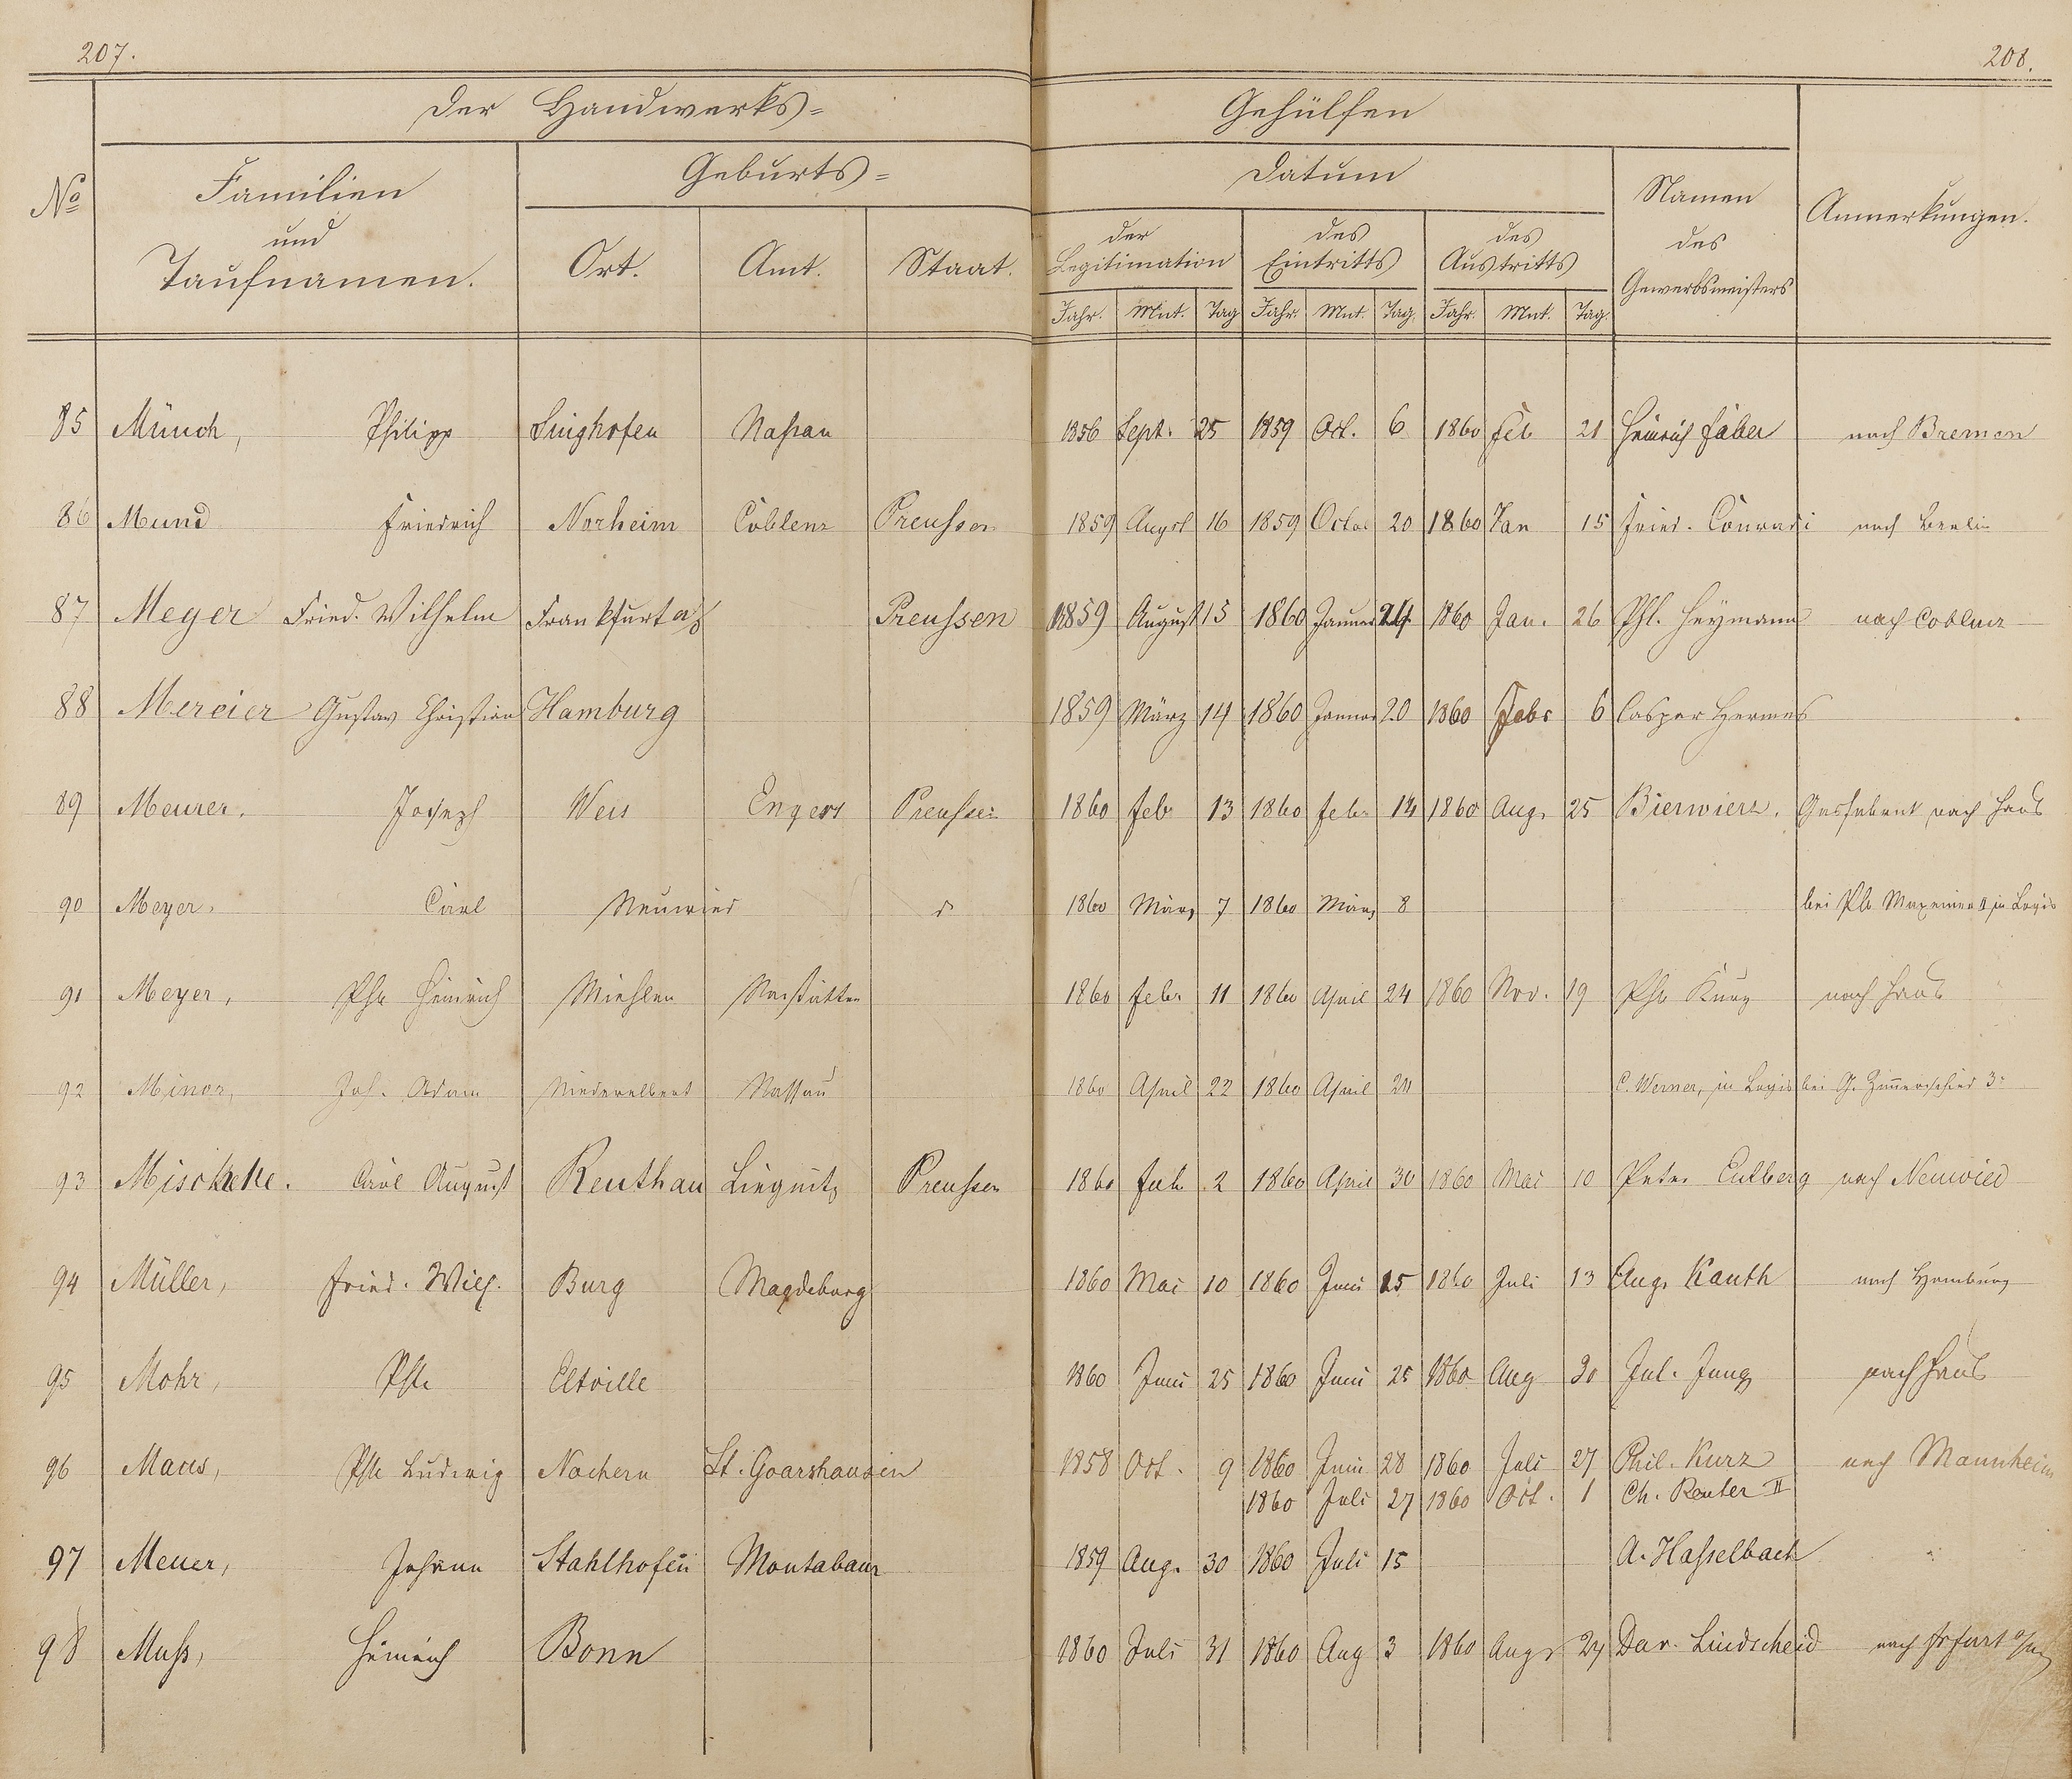 207.
208.
Der Handwerks=
Gehülfen
No
Familien
und
Taufnamen.
Geburts=
Ort.
Amt.
Staat.
Datum
der
Legitimation
des
Eintritts
des
Austritts
Jahr. Mnt. Tag Jahr. Mnt. Tag. Jahr. Mnt. Tag.
Namen
des
Gewerbsmeisters
Anmerkungen.
85 Münch, Philipp Singhofen Nassau 1856 Sept. 25 1859 Oct. 6 1860 Feb 21 Heinrich Faber nach Bremen
86 Mund Friedrich Norheim Coblenz Preussen 1859 Augst 16 1859 Octor 20 1860 Jan 15 Fried. Conradi nach Berlin
87 Meyer Fried. Wilhelm Frankfurt Preussen 1859 August 15 1860 Januar 24 1860 Jan. 26 Phl. Heymann nach Coblenz
88 Mercier Gustav Christian Hamburg 1859 März 14 1860 Januar 20 1860 Febr 6 Caspar Hermes
89 Meurer. Joseph Weis Engers Preussen 1860 Feb 13 1860 Febr 14 1860 Aug. 25 Bierwierz. nach Haus
90 Meyer. Carl Neuwied d 1860 März 7 1860 März 8 bei Ph. in Logis
91 Meyer, Phl Heinrich Miehlen Nastätten 1860 Febr 11 1860 April 24 1860 Nov. 19 Phl Kurz nach Haus
92 Minor, Joh. Adam Niederelbert Nassau 1860 April 22 1860 April 24 C. Werner, in Logis bei G. Zimmerschied 3r
93 Mischke. Carl August Reuthau Liegnitz Preussen 1860 Feb 2 1860 April 30 1860 Mai 10 Peter Eulberg nach Neuwied
94 Müller, Fried. Wilh. Burg Magdeburg 1860 Mai 10 1860 Juni 15 1860 Juli 13 Aug. Kauth nach Hamburg
95 Mohr, Phl Eltville 1860 Juni 25 1860 Juni 25 1860 Aug 30 Jul. Jung nach Haus
96 Maus, Phl Ludwig Nochern St. Goarshausen 1858 Oct. 9 1860 Juni 28 1860 Juli 27 Phil. Kurz nach Mannheim
1860 Juli 27 1860 Oct. 1 Ch. Reuter II
97 Meuer, Johann Stahlhofen Montabaur 1859 Aug. 30 1860 Juli 15 A. Hasselbach
98 Muss, Heinrich Bonn 1860 Juli 31 1860 Aug 3 1860 Aug 27 Dav. Lindscheid nach